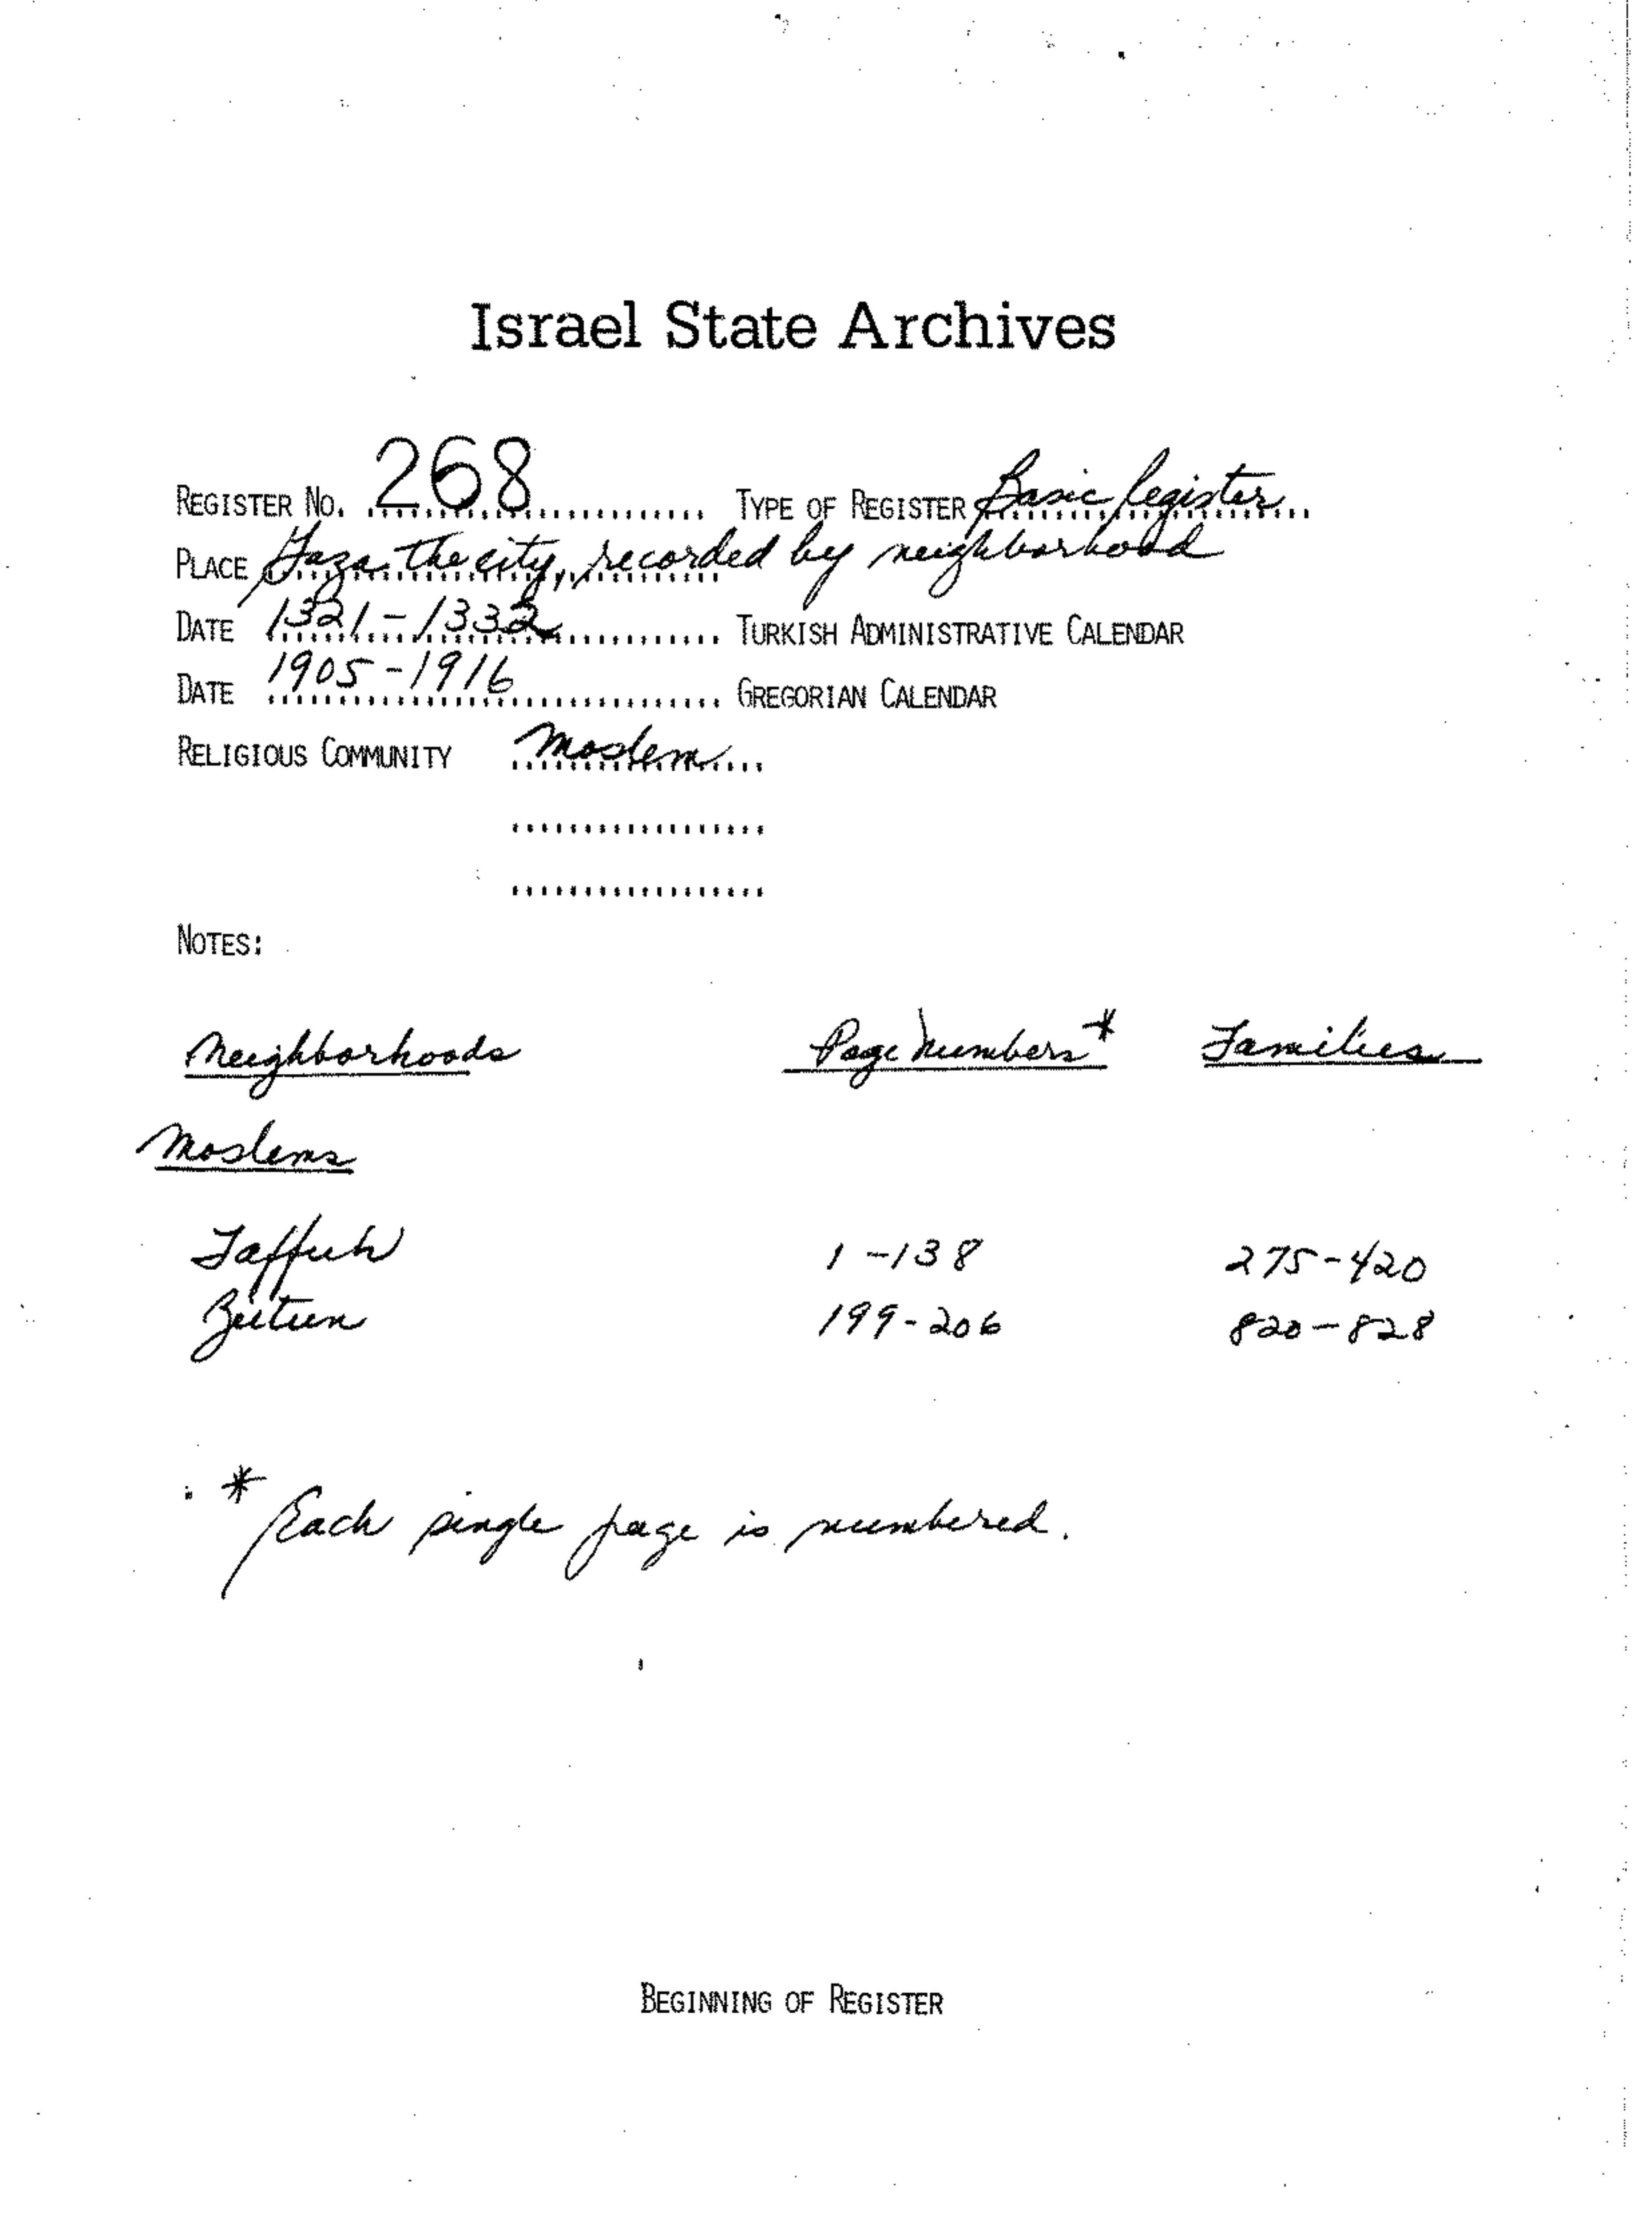 Israel State Archives
REGISTER NO. 268 TYPE OF REGISTER Basic Register
PLACE Gaza the city, recorded by neighborhood
DATE 1321-1332 TURKISH ADMINISTRATIVE CALENDAR
DATE 1905-1916 GREGORIAN CALENDAR
RELIGIOUS COMMUNITY Moslem
NOTES:
Neighborhoods Page Numbers* Families
Moslems
Taffuh 1-138 275-420
Zeitun 199-206 820-828
* Each single page is numbered.
BEGINNING OF REGISTER